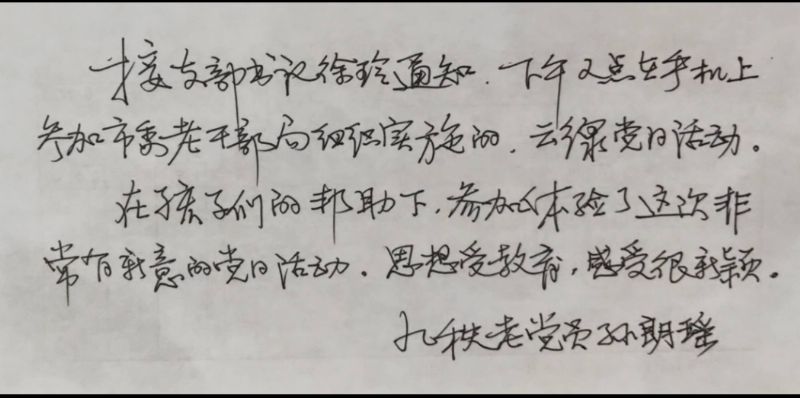 接支部书记徐玲通知.下午2点在手机上
参加市委老干部局组织实施的,云缐党日活动。
在孩子们的邦助下,参加体验了这次非
常有新意的党日活动.思想受教育,感受很新颖。
九秩老党员孙明瑶